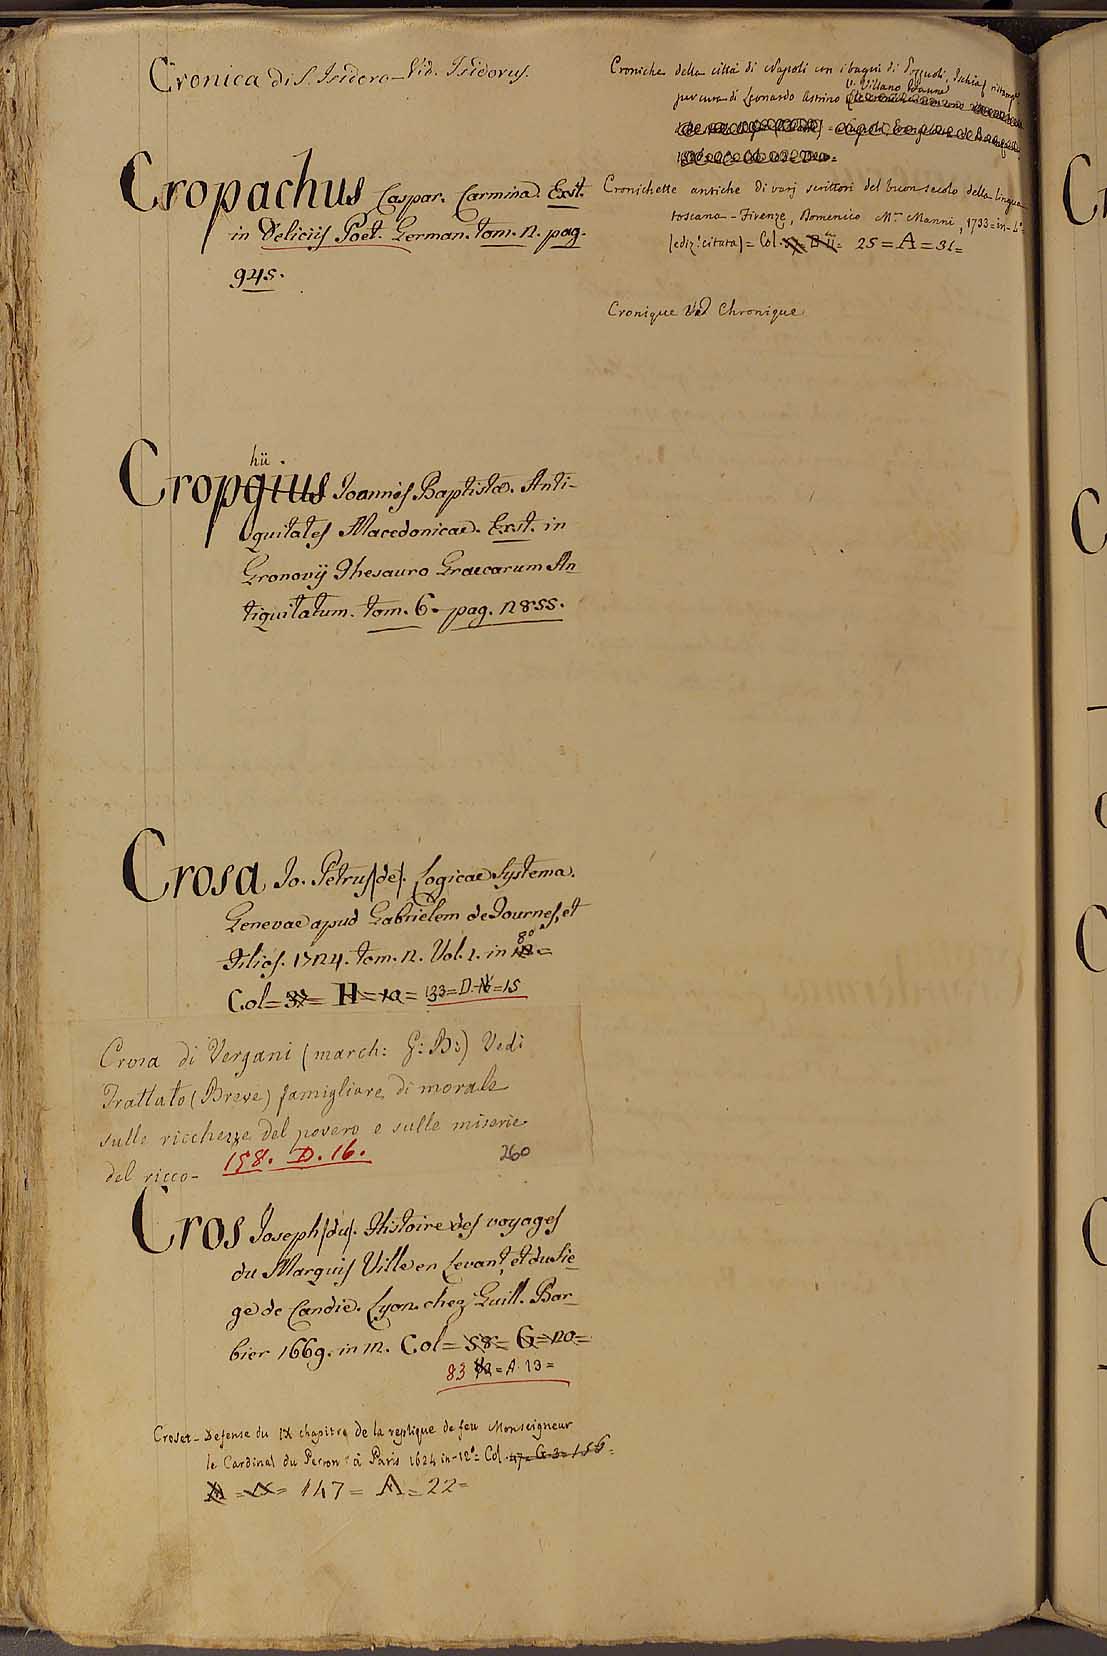 Cronica di S. Isidoro – Vid. Isidorus.
Cropachus Caspar. Carmina. Exst.
in Deliciis Poet. German. tom. 2. pag.
945.
hii.
Cropgius Joannis Baptistæ. Anti-
quitates Macedonicae. Exst. in
Gronovij Thesauro Graecarum An
tiquitatum. tom. 6. pag. 2855.
Crosa Jo. Petrus (de). Logicae Systema.
Genevae apud Gabrielem de Tournes, et
Filios. 1724. tom. 2. Vol. 1. in 8º =
Col = H = 133 = D. = 15
Crosa di Vergani (march: G: B:) Vedi
Trattato (Breve) famigliare di morale
sulle ricchezze del povero e sulle miserie
del ricco – 158. D. 16. 260
Cros Joseph (du). Histoire des voyages
du Marquis Ville en Levant, et du Sie
ge de Candie. Lyon. chez Guill. Bar
bier 1669. in 12. Col = 58 = G = 20 =
83 = A. 13 =
Croset – Defense du IX chapitre de la replique de feu Monseigneur
le Cardinal du Perron : à Paris 1624 in-12º = Col. 47 = G. 3 = 156 =
147 = A = 22 =
Croniche della città di Napoli con i bagni di Pozzuoli, Ischia
per cura di Leonardo Astrino V. Villano
Cronichette antiche di varj scrittori del buon secolo della lingua
toscana – Firenze, Domenico Mª Manni, 1733 = in-4º =
(ediz: citata) = Col. 25 = A = 31 =
Cronique Ved Chronique